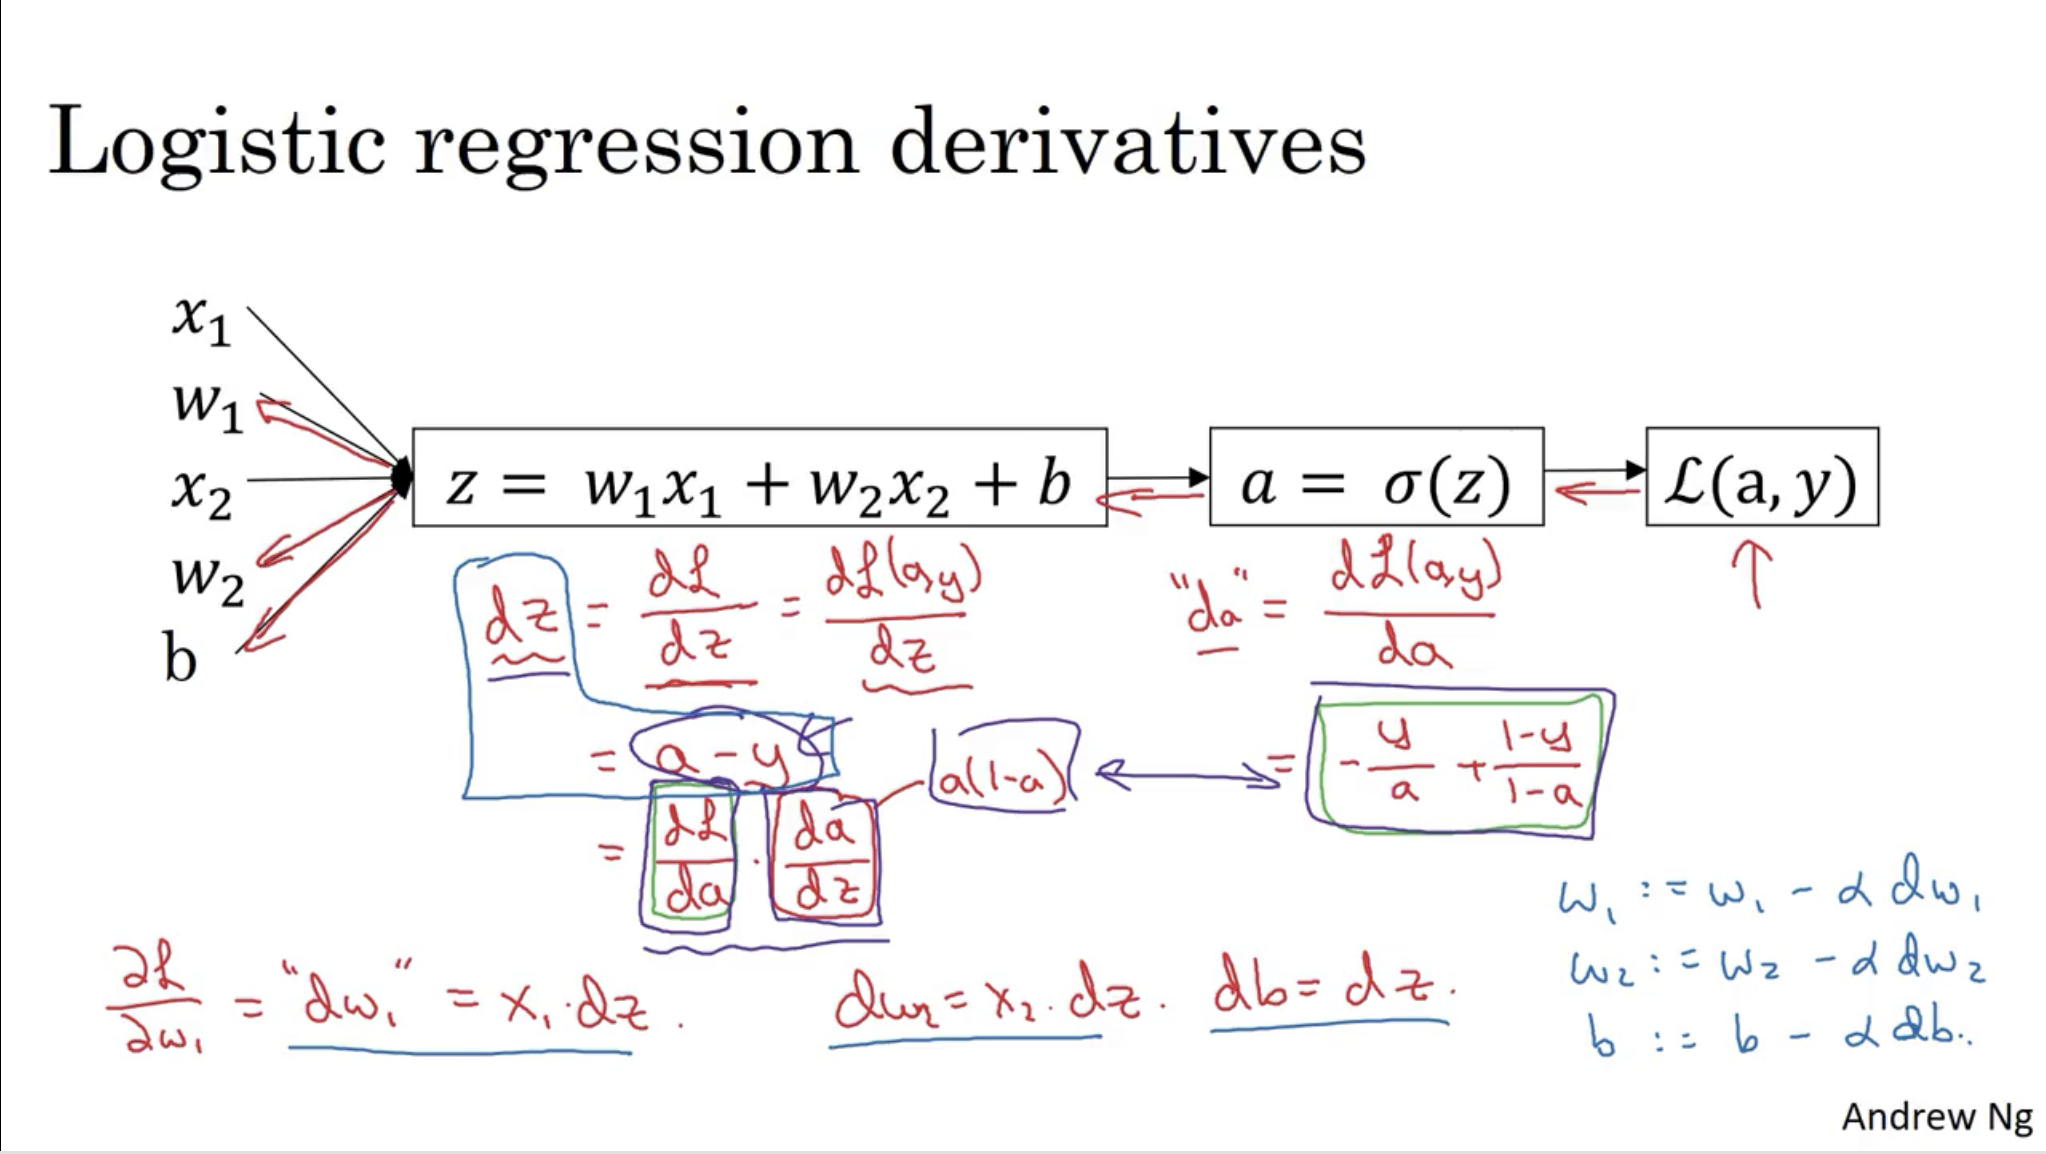 Logistic regression derivatives
x₁
w₁
x₂
w₂
b
z = w₁x₁ + w₂x₂ + b
a = σ(z)
ℒ(a, y)
dz = dℒ/dz = dℒ(a,y)/dz
= a − y
= dℒ/da · da/dz
a(1−a)
"da" = dℒ(a,y)/da
= −y/a + (1−y)/(1−a)
∂ℒ/∂w₁ = "dw₁" = x₁·dz.
dw₂ = x₂·dz.
db = dz.
w₁ := w₁ − α dw₁
w₂ := w₂ − α dw₂
b := b − α db.
Andrew Ng